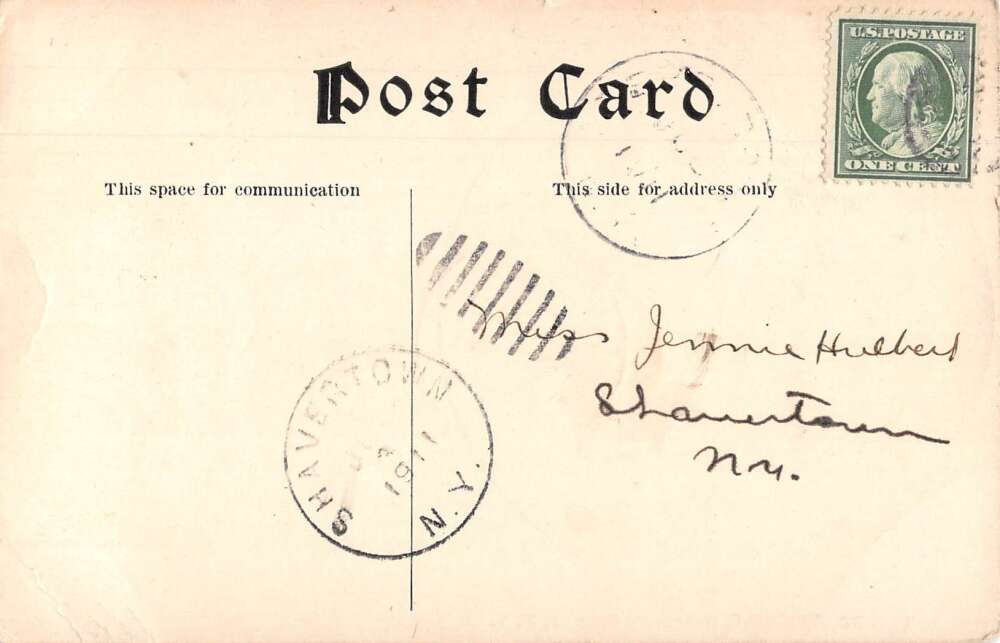 Post Card
U.S. POSTAGE
ONE CENT
This space for communication
This side for address only
Miss Jennie Hulbert
Shavertown
N.Y.
SHAVERTOWN
1911
N.Y.